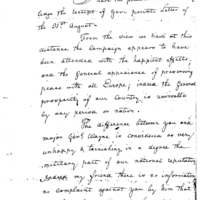 ledge the receipt of your private Letter of
the 31st August.
From the view we had at this
distance the Campaign appears to have
been attended with the happiest effects,
and the general appearance of preserving
peace with all Europe, indeed the General
prosperity of our Country is enviable
by any person or nation.
The difference between you and
Major Genl Wayne is considered as very
unhappy & tarnishing in a degree the
military part of our national reputation
my friend there is no information
no complaint against you by him that